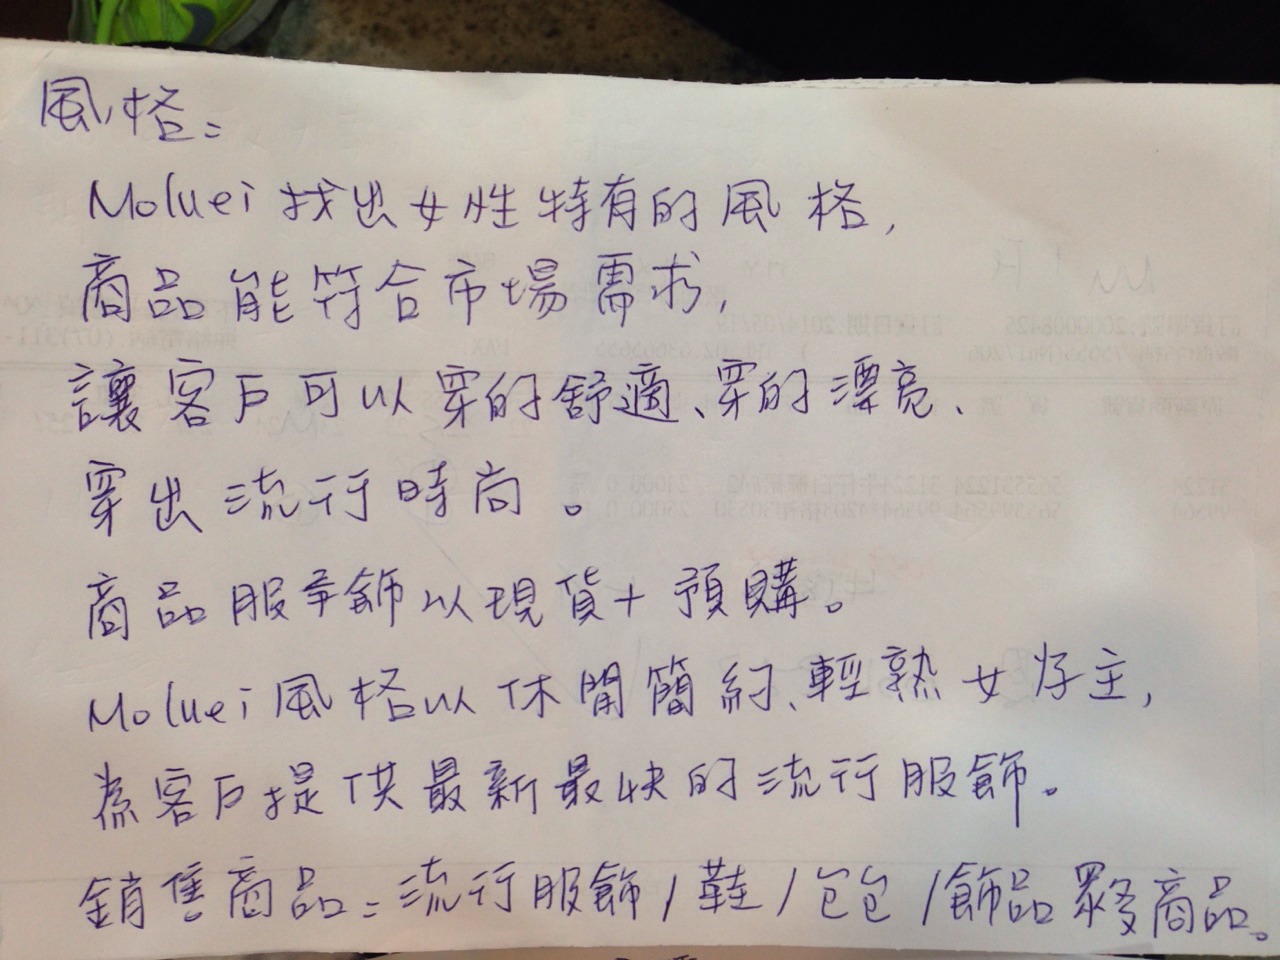 風格:
Moluei 找出女性特有的風格,
商品能符合市場需求,
讓客戶可以穿的舒適、穿的漂亮、
穿出流行時尚。
商品服飾以現貨+預購。
Moluei 風格以休閒簡約、輕熟女為主,
為客戶提供最新最快的流行服飾。
銷售商品:流行服飾/鞋/包包/飾品眾多商品。